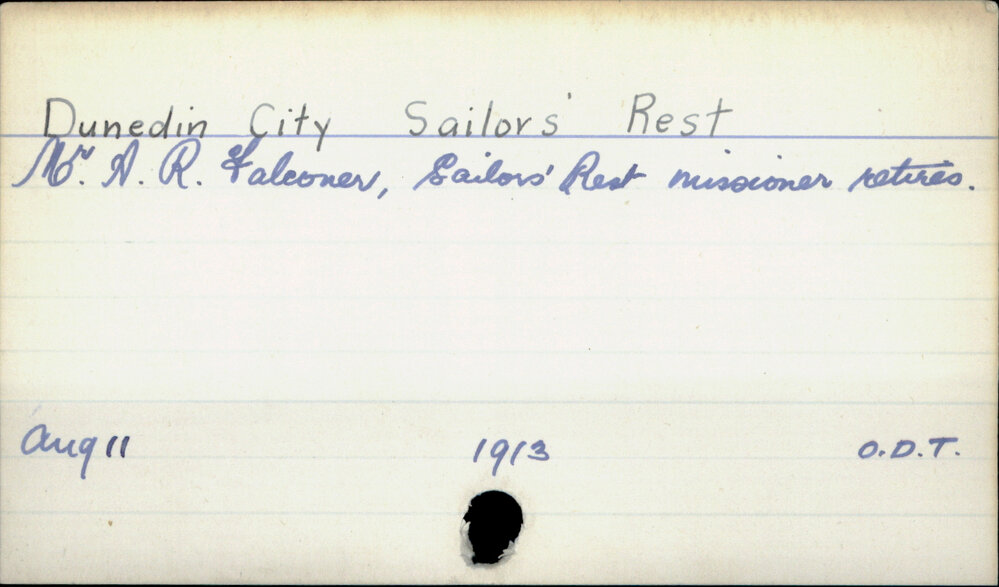 Dunedin City Sailors' Rest
Mr. A. R. Falconer, Sailors' Rest missioner retires.
Aug 11 1913 O.D.T.